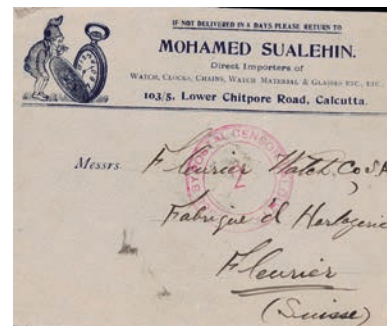 IF NOT DELIVERED IN 8 DAYS PLEASE RETURN TO
MOHAMED SUALEHIN.
Direct Importers of
WATCH, CLOCKS, CHAINS, WATCH MATERIAL & GLASSES ETC., ETC.
103/5, Lower Chitpore Road, Calcutta.
Messrs
Fleurier Watch Co S.A
Fabrique d' Horlogerie
Fleurier
(Suisse)
BY POSTAL CENSOR
7